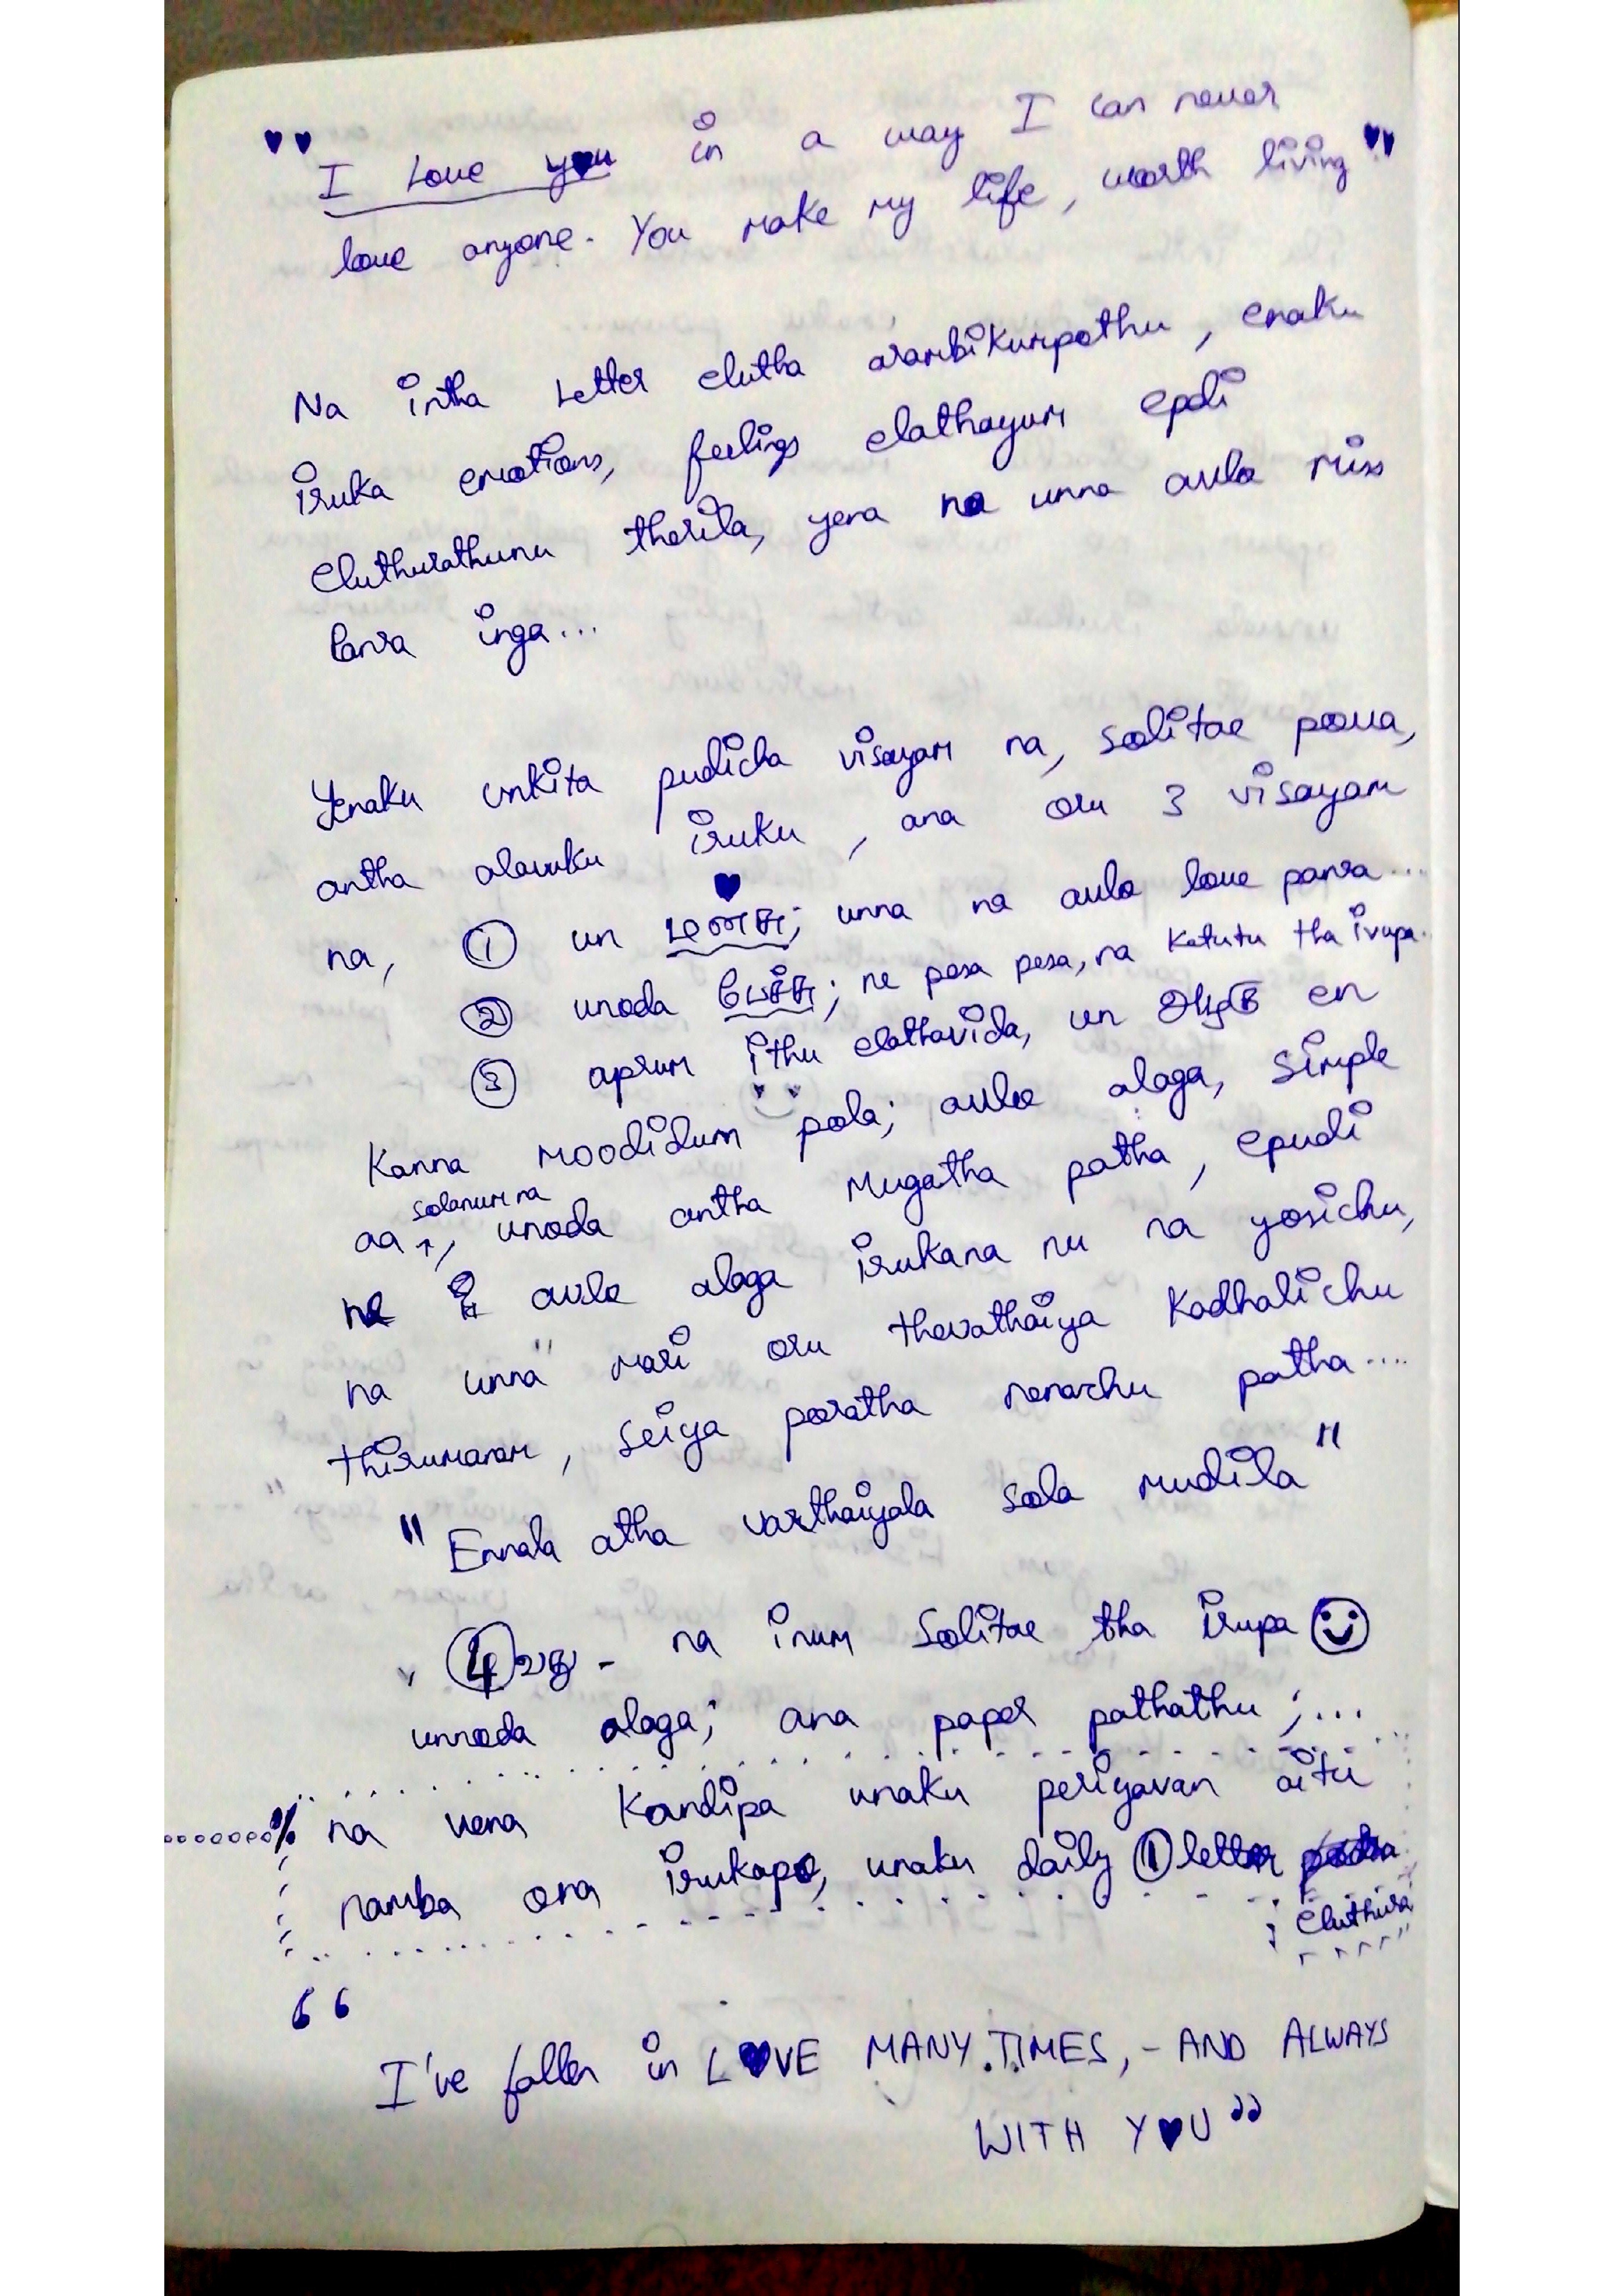 "I Love you in a way I can never
love anyone. You make my life, worth living"
Na intha Letter elutha arambikumpothu, enaku
iruka emotions, feelings elathayum epdi
eluthurathunu therila, yena na unna avlo miss
panra inga...
Yenaku unkita pudicha visayam na, solitae pova,
antha alavuku iruku, ana oru 3 visayam
na, ① un மனசு; unna na avlo love panra...
② unoda பேச்சு; ne pesa pesa, na Ketutu tha irupa.
③ aprum ithu elathavida, un அழகு en
Kanna moodidum pola; avlo alaga, simple
aa ↑ solanum na, unoda antha Mugatha patha, epudi
ne avlo alaga irukana nu na yosichu,
na unna mari oru thevathaiya Kadhalichu
thirumanam, seiya poratha nenachu patha....
"Ennala atha varthaiyala sola mudila"
④ வது - na inum Solitae tha irupa
unnoda alaga; ana paper pathathu ;...
% na vena Kandipa unaku periyavan aitu
namba ona irukapo, unaku daily ① letter
eluthura
"I've fallen in LOVE MANY TIMES, - AND ALWAYS
WITH YOU"